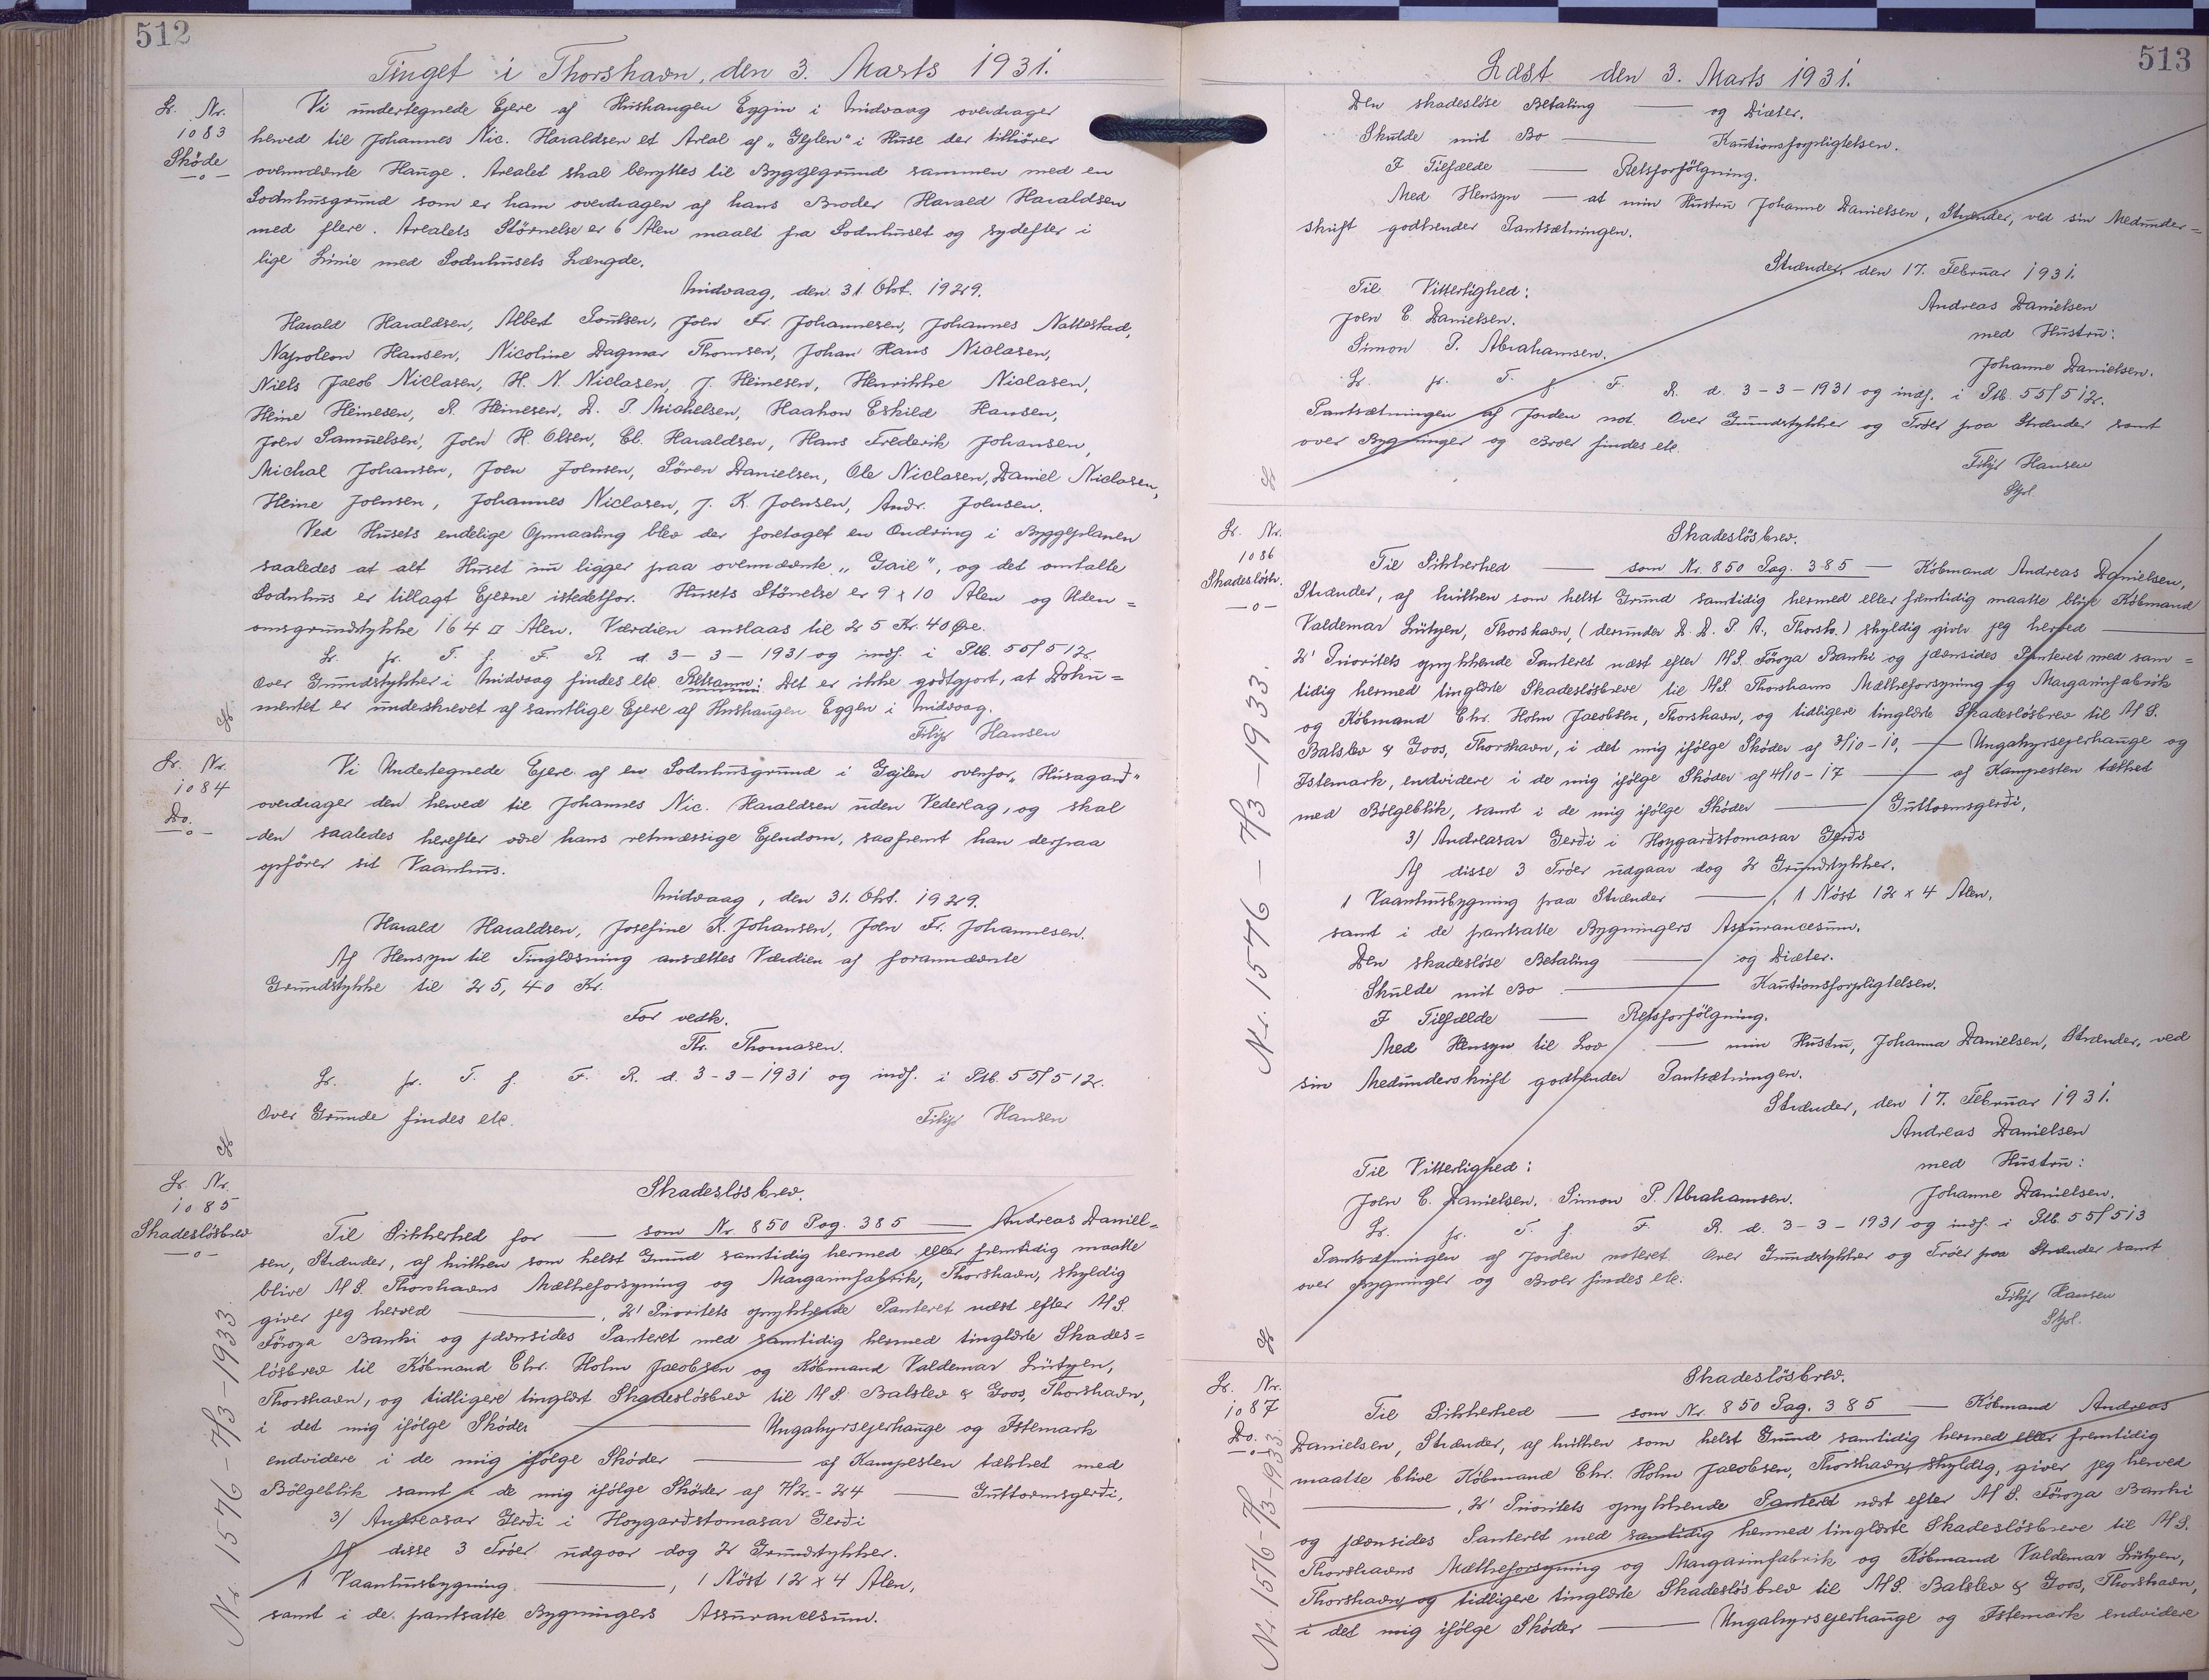 512
Tinget i Thorshavn, den 3. Marts 1931.
Lb. Nr.
1083
Skøde
Vi undertegnede Ejere af Hushaugen Eggin i Midvaag overdrager
herved til Johannes Nic. Haraldsen et Areal af „Gejlen" i Huse der tilhører
ovennævnte Hauge. Arealet skal benyttes til Byggegrund sammen med en
Sodnhusgrund som er ham overdragen af hans Broder Harald Haraldsen
med flere. Arealets Størrelse er 6 Alen maalt fra Sodnhuset og sydefter i
lige Linie med Sodnhusets Længde.
Midvaag, den 31. Okt. 1929.
Harald Haraldsen, Albert Poulsen, Joen Fr. Johannesen, Johannes Nattestad,
Napoleon Hansen, Nicoline Dagmar Thomsen, Johan Hans Niclasen,
Niels Jacob Niclasen, H. N. Niclasen, J. Heinesen, Henrikke Niclasen,
Heine Heinesen, R. Heinesen, D. P. Michelsen, Haakon Eskild Hansen,
Joen Samuelsen, Joen H. Olsen, El. Haraldsen, Hans Frederik Johansen,
Michal Johansen, Joen Joensen, Søren Danielsen, Ole Niclasen, Daniel Niclasen,
Heine Joensen, Johannes Niclasen, J. K. Joensen, Andr. Joensen.
Ved Husets endelige Opmaaling blev der foretaget en Ændring i Byggeplanen
saaledes at alt Huset nu ligger paa ovennævnte „Gail", og det omtalte
Sodnhus er tillagt Ejerne istedetfor. Husets Størrelse er 9 x 10 Alen og Uden=
omsgrundstykke 164 □ Alen. Værdien anslaas til 25 Kr. 40 Øre.
Lb. fr. T. f. F. R. d. 3-3-1931 og indf. i Ptb. 55/512.
Over Grundstykker i Midvaag findes etc. Retsanm: Det er ikke godtgjort, at Doku=
mentet er underskrevet af samtlige Ejere af Hushaugen Eggen i Midvaag.
Filip Hansen
Lb. Nr.
1084
Do.
Vi Undertegnede Ejere af en Sodnhusgrund i Gejlen ovenfor „Husagarð"
overdrager den herved til Johannes Nic. Haraldsen uden Vederlag, og skal
den saaledes herefter være hans retmæssige Ejendom, saafremt han derpaa
opfører sit Vaanhus.
Midvaag, den 31. Okt. 1929.
Harald Haraldsen, Josefine K. Johansen, Joen Fr. Johannesen.
Af Hensyn til Tinglæsning ansættes Værdien af forannævnte
Grundstykke til 25,40 Kr.
For vedk.
Th. Thomasen.
Lb. fr. T. f. F. R. d. 3-3-1931 og indf. i Ptb. 55/512.
Over Grunde findes etc.
Filip Hansen
Lb. Nr.
1085
Skadesløsbrev
Nr. 1576 - 7/3-1933.
Skadesløsbrev.
Til Sikkerhed for — som Nr. 850 Pag. 385 — Andreas Daniel=
sen, Strænder, af hvilken som helst Grund samtidig hermed eller fremtidig maatte
blive A/S. Thorshavns Mælkeforsyning og Margarinfabrik, Thorshavn, skyldig
giver jeg herved —, 2' Prioritets oprykkende Panteret næst efter A/S.
Föroya Banki og jævnsides Panteret med samtidig hermed tinglæste Skades=
løsbrev til Købmand Chr. Holm Jacobsen og Købmand Valdemar Lützen,
Thorshavn, og tidligere tinglæst Skadesløsbrev til A/S. Balslev & Goos, Thorshavn,
i det mig ifølge Skøder — Ungahyrsejerhauge og Istemark
endvidere i de mig ifølge Skøder — af Kampesten tækket med
Bølgeblik samt i de mig ifølge Skøder af 7/2-24 — Guttormsgerði,
3/ Andreasar Gerði i Hoygarðstomasar Gerði
Af disse 3 Trøer udgaar dog 2 Grundstykker.
1 Vaanhusbygning —, 1 Nöst 12 x 4 Alen,
samt i de pantsatte Bygningers Assurancesum.
513
Læst den 3. Marts 1931.
Den skadesløse Betaling — og Diæter.
Skulde mit Bo — Kautionsforpligtelsen.
I Tilfælde — Retsforfølgning.
Med Hensyn — at min Hustru Johanne Danielsen, Strænder, ved sin Medunder=
skrift godkender Pantsætningen.
Strænder, den 17. Februar 1931.
Til Vitterlighed:
Andreas Danielsen
Joen C. Danielsen.
med Hustru:
Simon P. Abrahamsen.
Johanne Danielsen.
Lb. fr. T. f. F. R. d. 3-3-1931 og indf. i Ptb. 55/512.
Pantsætningen af Jorden not. Over Grundstykker og Trøer paa Strænder samt
over Bygninger og Broer findes etc.
Filip Hansen
Lb. Nr.
1086
Skadesløsbr.
Nr. 1576 - 7/3-1933.
Skadesløsbrev.
Til Sikkerhed — som Nr. 850 Pag. 385 — Købmand Andreas Danielsen,
Strænder, af hvilken som helst Grund samtidig hermed eller fremtidig maatte blive Købmand
Valdemar Lützen, Thorshavn, (derunder D. D. P. A., Thorsh.) skyldig giver jeg herved —
2' Prioritets oprykkende Panteret næst efter A/S. Föroya Banki og jævnsides Panteret med sam=
tidig hermed tinglæste Skadesløsbreve til A/S. Thorshavns Mælkeforsyning og Margarinfabrik
og Købmand Chr. Holm Jacobsen, Thorshavn, og tidligere tinglæste Skadesløsbrev til A/S.
Balslev & Goos, Thorshavn, i det mig ifølge Skøder af 3/10-10, — Ungahyrsejerhauge og
Istemark, endvidere i de mig ifølge Skøder af 4/10-17 — af Kampesten tækket
med Bølgeblik, samt i de mig ifølge Skøder — Guttormsgerði,
3/ Andreasar Gerði i Hoygarðstomasar Gerði
Af disse 3 Trøer udgaar dog 2 Grundstykker.
1 Vaanhusbygning paa Strænder —, 1 Nöst 12 x 4 Alen,
samt i de pantsatte Bygningers Assurancesum.
Den skadesløse Betaling — og Diæter.
Skulde mit Bo — Kautionsforpligtelsen.
I Tilfælde — Retsforfølgning.
Med Hensyn til Lov — min Hustru, Johanna Danielsen, Strænder, ved
sin Medunderskrift godkender Pantsætningen.
Strænder, den 17. Februar 1931.
Andreas Danielsen
Til Vitterlighed:
med Hustru:
Joen C. Danielsen. Simon P. Abrahamsen.
Johanne Danielsen.
Lb. fr. T. f. F. R. d. 3-3-1931 og indf. i Ptb. 55/513
Pantsætningen af Jorden noteret. Over Grundstykker og Trøer paa Strænder samt
over Bygninger og Broer findes etc.
Filip Hansen
Lb. Nr.
1087
Do.
Nr. 1576-7/3-1933.
Skadesløsbrev.
Til Sikkerhed — som Nr. 850 Pag. 385 — Købmand Andreas
Danielsen, Strænder, af hvilken som helst Grund samtidig hermed eller fremtidig
maatte blive Købmand Chr. Holm Jacobsen, Thorshavn, skyldig, giver jeg herved
—, 2' Prioritets oprykkende Panteret næst efter A/S. Föroya Banki
og jævnsides Panteret med samtidig hermed tinglæste Skadesløsbreve til A/S.
Thorshavns Mælkeforsyning og Margarinfabrik og Købmand Valdemar Lützen,
Thorshavn, og tidligere tinglæste Skadesløsbrev til A/S. Balslev & Goos, Thorshavn,
i det mig ifølge Skøder — Ungahyrsejerhauge og Istemark endvidere